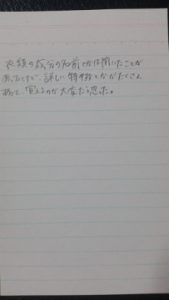 衣類の成分の名前とかは聞いたことが
あったけど、詳しい特徴とかがたくさん
あって、覚えるのが大変だと思った。